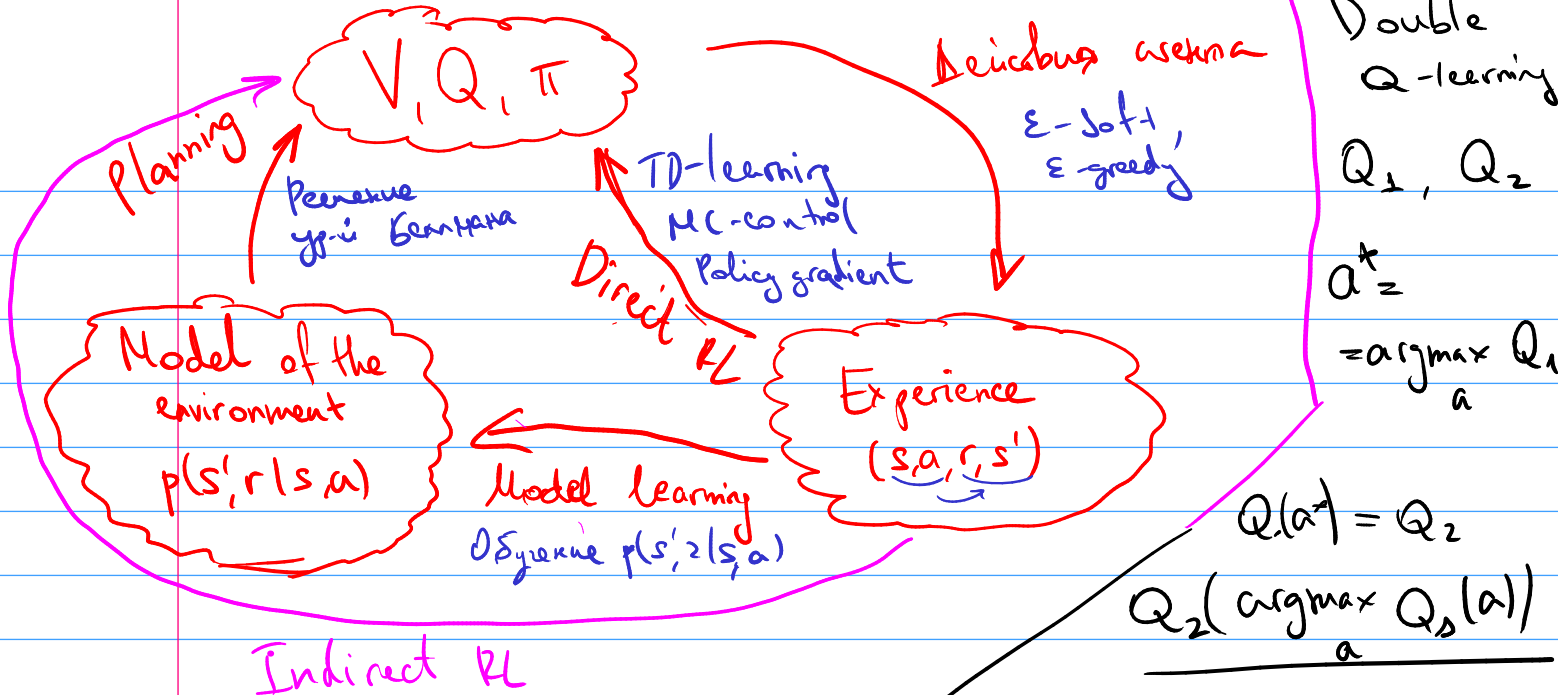 V, Q, π
Действия агента
ε-soft,
ε-greedy
Planning
Решение
ур-й Беллмана
TD-learning
MC-control
Policy gradient
Direct RL
Model of the
environment
p(s', r | s, a)
Experience
(s, a, r, s')
Model learning
Обучение p(s', r | s, a)
Indirect RL
Double
Q-learning
Q₁, Q₂
a* =
= argmax Q₁
a
Q(a*) = Q₂
Q₂(argmax Q₁(a))
a